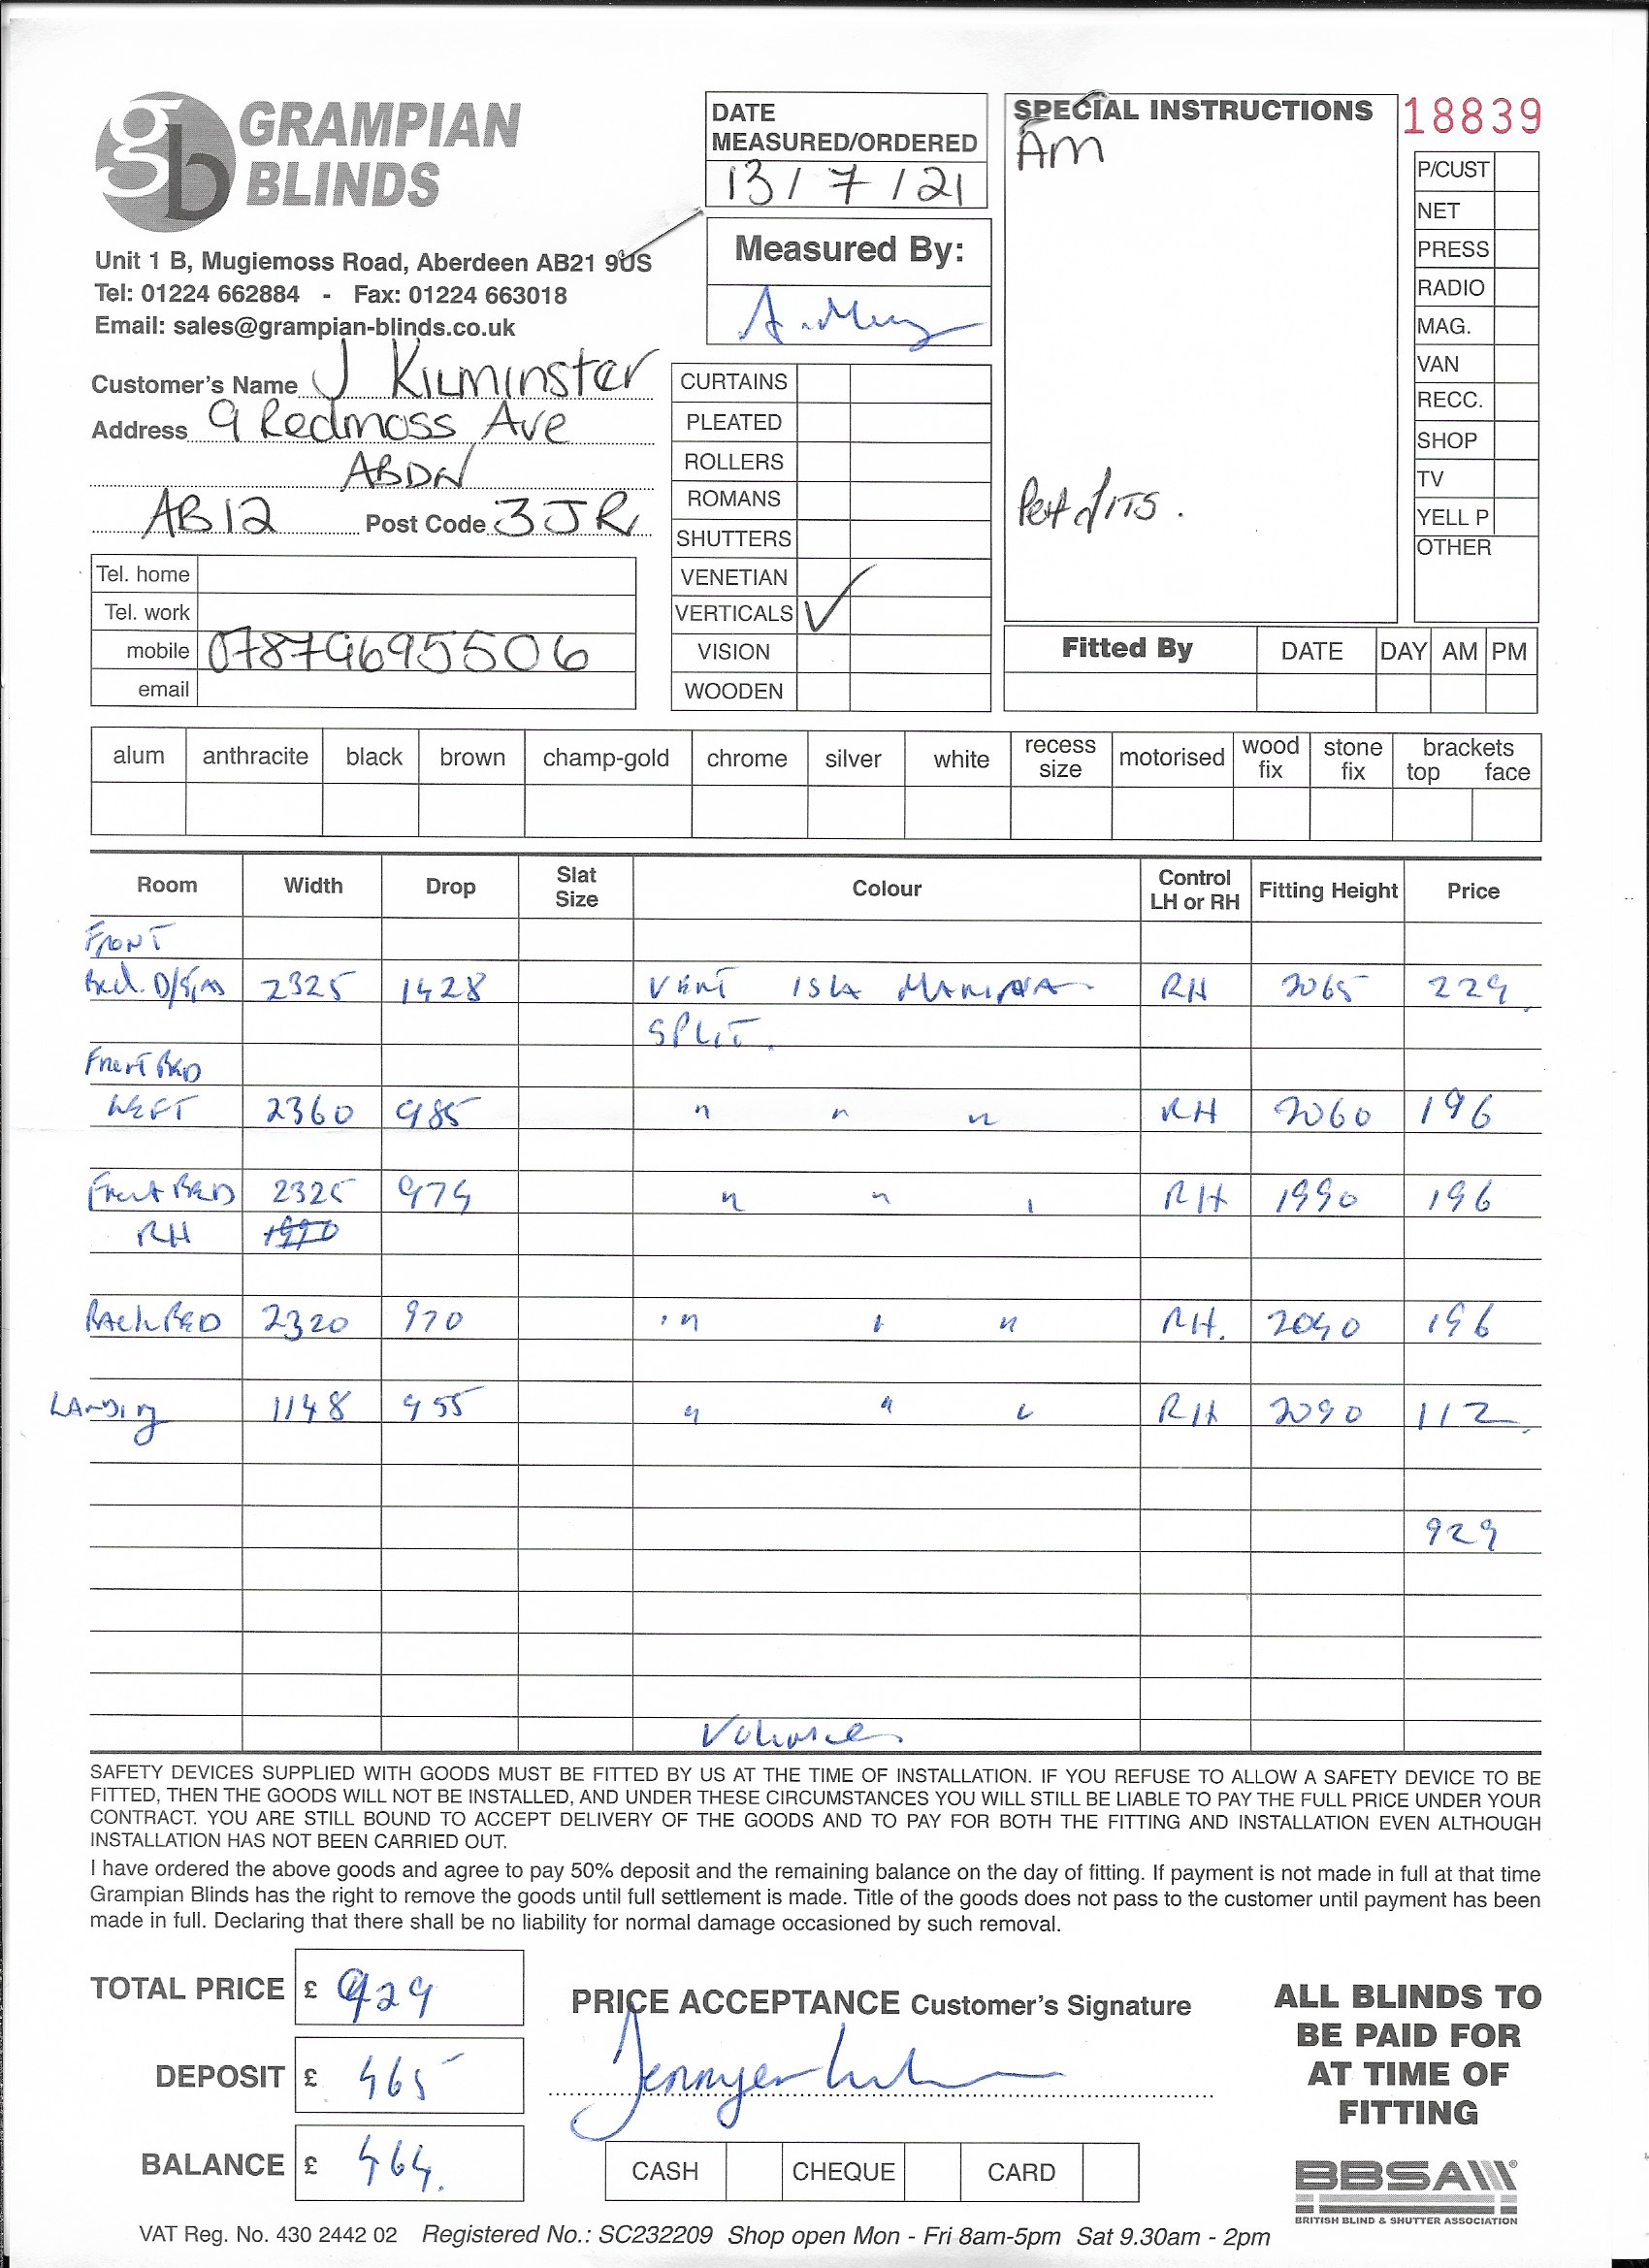 gb GRAMPIAN BLINDS
Unit 1 B, Mugiemoss Road, Aberdeen AB21 9US
Tel: 01224 662884 - Fax: 01224 663018
Email: sales@grampian-blinds.co.uk
DATE
MEASURED/ORDERED
13 / 7 / 21
Measured By:
SPECIAL INSTRUCTIONS
Am
18839
P/CUST
NET
PRESS
RADIO
MAG.
VAN
RECC.
SHOP
TV
YELL P
OTHER
Customer's Name J Kilminster
Address 9 Redmoss Ave
ABDN
AB12 Post Code 3JR
Tel. home
Tel. work
mobile 07879695506
email
CURTAINS
PLEATED
ROLLERS
ROMANS
SHUTTERS
VENETIAN
VERTICALS ✓
VISION
WOODEN
Fitted By DATE DAY AM PM
alum anthracite black brown champ-gold chrome silver white recess size motorised wood fix stone fix brackets top face
Room Width Drop Slat Size Colour Control LH or RH Fitting Height Price
FRONT
Bed. 2325 1428 VERT ISLA RH 2065 229
SPLIT.
Front BED
LEFT 2360 985 " " " RH 2060 196
Front BED 2325 974 " " " RH 1990 196
RH
Back BED 2320 970 " " " RH. 2090 196
LANDING 1148 955 " " " RH 2090 112
929
SAFETY DEVICES SUPPLIED WITH GOODS MUST BE FITTED BY US AT THE TIME OF INSTALLATION. IF YOU REFUSE TO ALLOW A SAFETY DEVICE TO BE
FITTED, THEN THE GOODS WILL NOT BE INSTALLED, AND UNDER THESE CIRCUMSTANCES YOU WILL STILL BE LIABLE TO PAY THE FULL PRICE UNDER YOUR
CONTRACT. YOU ARE STILL BOUND TO ACCEPT DELIVERY OF THE GOODS AND TO PAY FOR BOTH THE FITTING AND INSTALLATION EVEN ALTHOUGH
INSTALLATION HAS NOT BEEN CARRIED OUT.
I have ordered the above goods and agree to pay 50% deposit and the remaining balance on the day of fitting. If payment is not made in full at that time
Grampian Blinds has the right to remove the goods until full settlement is made. Title of the goods does not pass to the customer until payment has been
made in full. Declaring that there shall be no liability for normal damage occasioned by such removal.
TOTAL PRICE £ 929
DEPOSIT £ 465
BALANCE £ 464.
PRICE ACCEPTANCE Customer's Signature
CASH CHEQUE CARD
ALL BLINDS TO
BE PAID FOR
AT TIME OF
FITTING
BBSA
BRITISH BLIND & SHUTTER ASSOCIATION
VAT Reg. No. 430 2442 02 Registered No.: SC232209 Shop open Mon - Fri 8am-5pm Sat 9.30am - 2pm